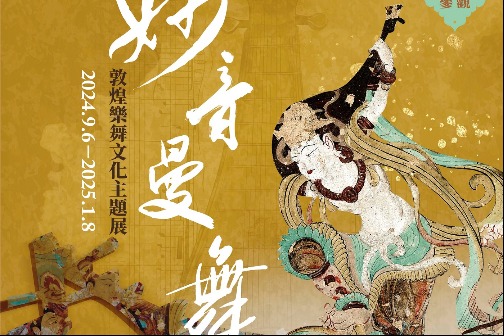 妙音曼舞
敦煌樂舞文化主題展
2024.9.6—2025.1.8
參觀